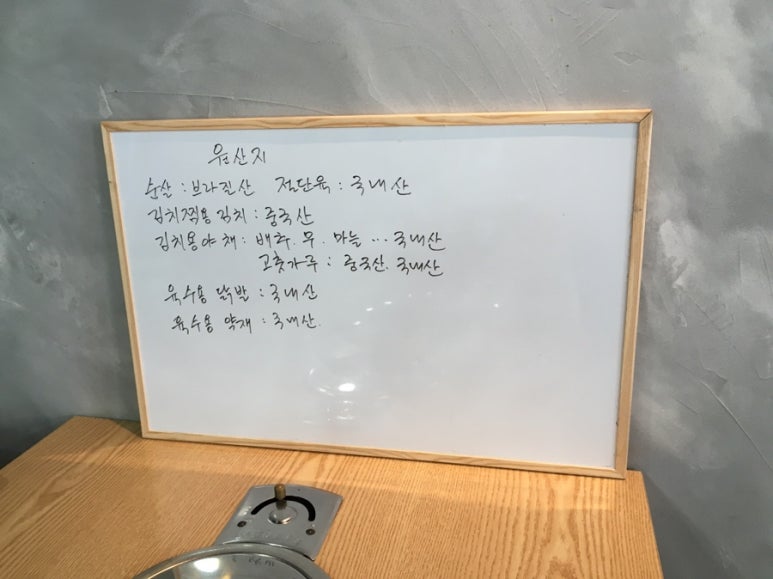 원산지
순살 : 브라질산 절단육 : 국내산
김치찜용 김치 : 중국산
김치용야채 : 배추. 무. 마늘 ... 국내산
고춧가루 : 중국산. 국내산
육수용 닭발 : 국내산
육수용 약재 : 국내산.